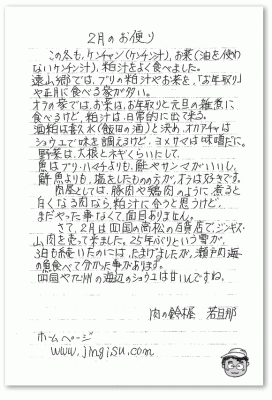 2月のお便り
この冬も、ケンチャン(ケンチン汁)、お菜(油を使わ
ないケンチン汁)、粕汁をよく食べました。
遠山郷では、ブリの粕汁やお菜を、「お年取り」
や正月に食べる家が多い。
オラの家では、お菜は、お年取りと元旦の雑煮に
食べるけど、粕汁は、日常的に出て来る。
酒粕は喜久水(飯田の酒)と決め、オカアチャは
ショウユで味を調えるけど、ヨメサマは味噌だに。
野菜は、大根とネギくらいだし、
魚は、ブリ・ハマチよりも、鮭やサンマがいいし、
鮮魚よりも、塩をしたものの方が、オラは好きです。
肉屋としては、豚肉や鶏肉のように煮ると
白くなる肉なら粕汁に合うと思うけど、
まだやった事なくて、面目ありません。
さて、2月は四国の高松の百貨店で、ジンギス・
山肉を売って来ました。25年ぶりという雪が、
3日も続いたのには、たまげましたが、瀬戸内海
の魚食べて分かった事があります。
四国や九州の海辺のショウユは甘いんですね。
肉の鈴木屋 若旦那
ホームページ
www.jingisu.com